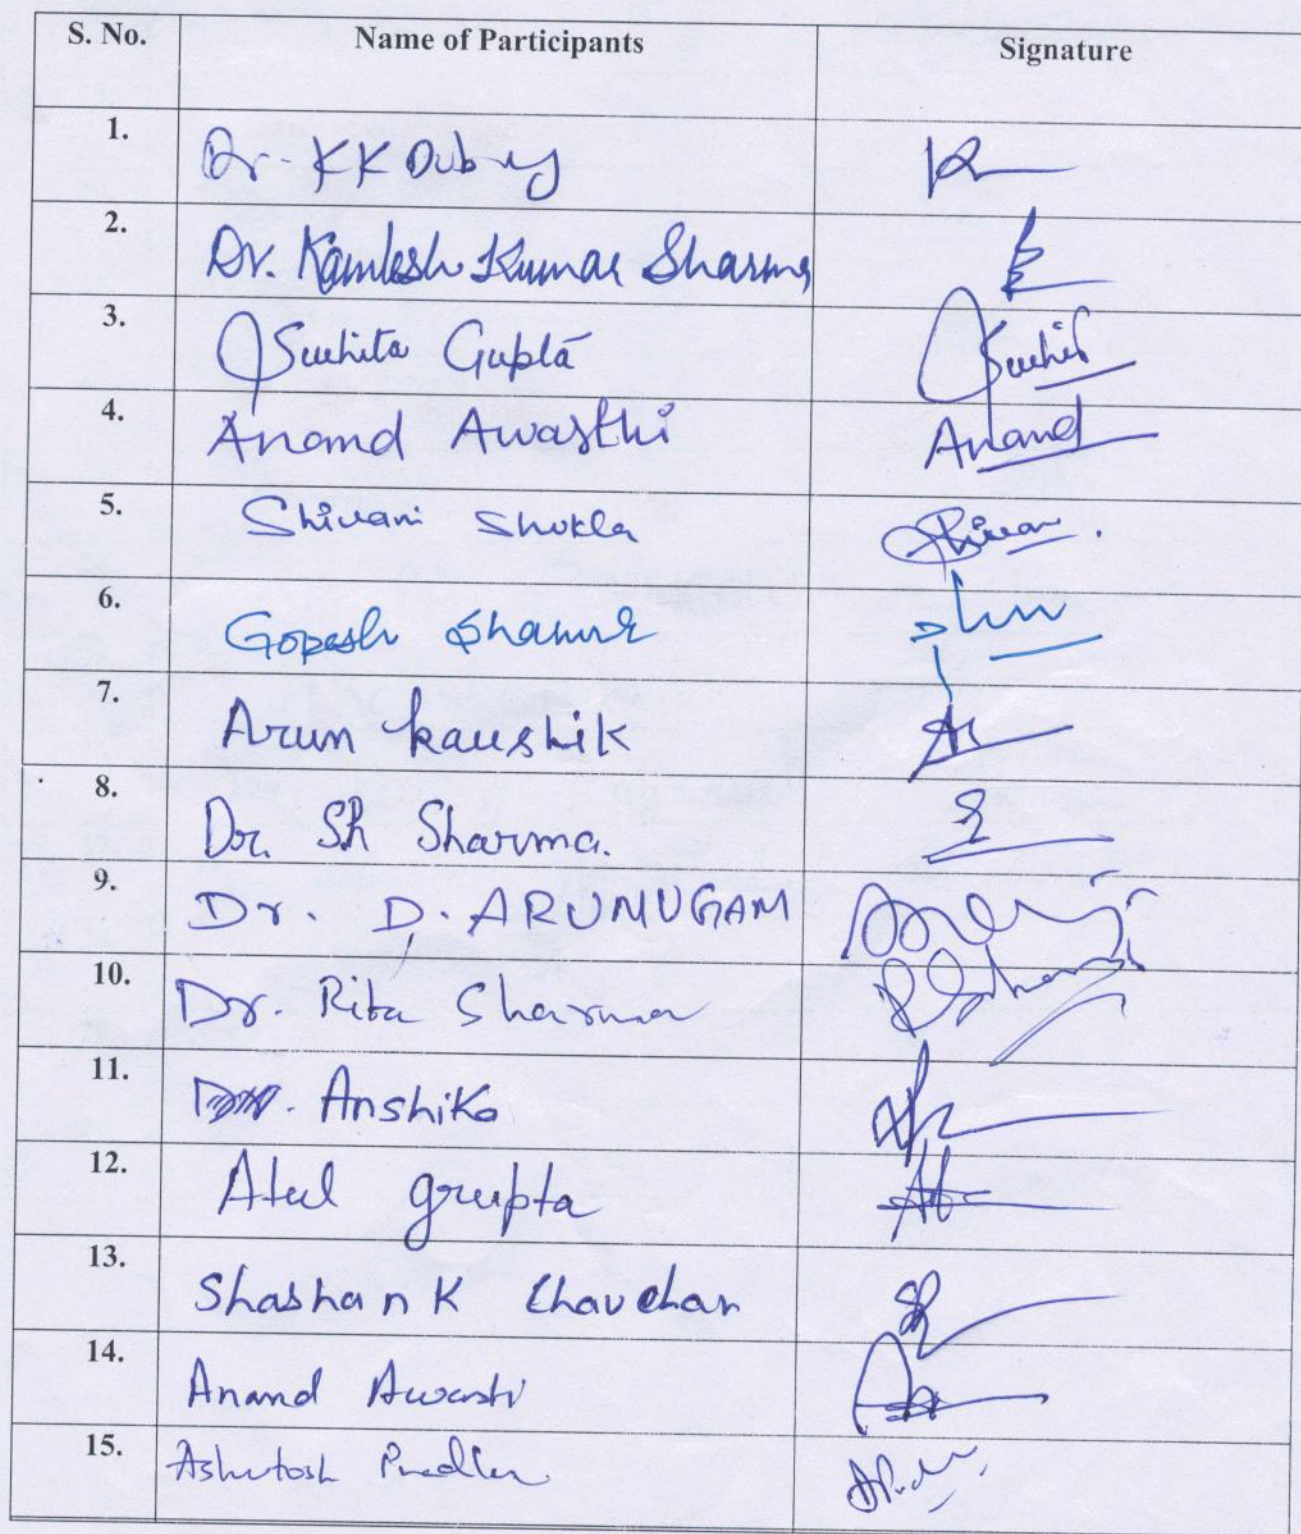 S. No. Name of Participants Signature
1. Dr. KK Dubey
2. Dr. Kamlesh Kumar Sharma
3. Suchita Gupta Suchit
4. Anand Awasthi Anand
5. Shivani Shukla Shivan
6. Gopesh Sharma
7. Arun kaushik
8. Dr. SK Sharma.
9. Dr. D. ARUMUGAM
10. Dr. Rita Sharma RSharma
11. Anshika
12. Atul Gupta
13. Shashank Chauchan
14. Anand Awasti
15. Ashutosh